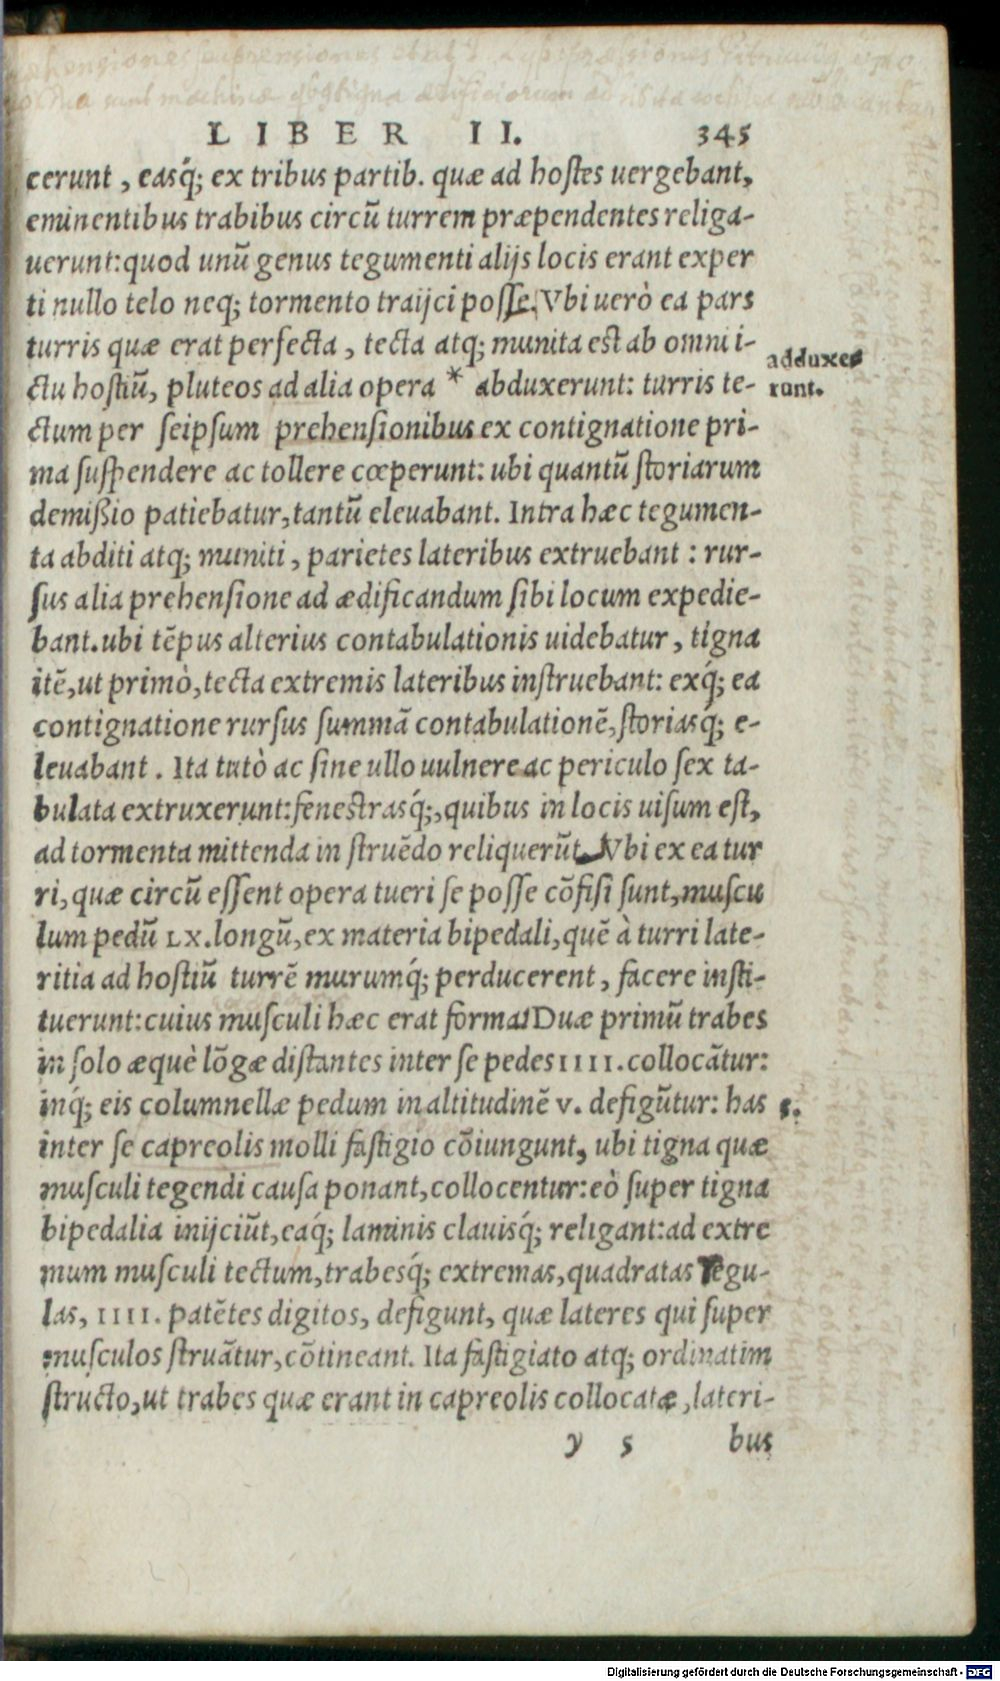 LIBER II. 345
cerunt, easq́; ex tribus partib. quæ ad hostes uergebant,
eminentibus trabibus circũ turrem præpendentes religa-
uerunt: quod unũ genus tegumenti alijs locis erant exper
ti nullo telo neq; tormento traijci posse. Vbi uerò ea pars
turris quæ erat perfecta, tecta atq; munita est ab omni i-
ctu hostiũ, pluteos ad alia opera * abduxerunt: turris te-
adduxe-
runt.
ctum per seipsum prehensionibus ex contignatione pri-
ma suspendere ac tollere cœperunt: ubi quantũ storiarum
demißio patiebatur, tantũ eleuabant. Intra hæc tegumen-
ta abditi atq; muniti, parietes lateribus extruebant: rur-
sus alia prehensione ad ædificandum sibi locum expedie-
bant. ubi tẽpus alterius contabulationis uidebatur, tigna
itẽ, ut primò, tecta extremis lateribus instruebant: exq́; ea
contignatione rursus summã contabulationẽ, storiasq́; e-
leuabant. Ita tutò ac sine ullo uulnere ac periculo sex ta-
bulata extruxerunt: fenestrasq́;, quibus in locis uisum est,
ad tormenta mittenda in struẽdo reliquerũt. Vbi ex ea tur
ri, quæ circũ essent opera tueri se posse cõfisi sunt, muscu
lum pedũ LX. longũ, ex materia bipedali, quẽ à turri late-
ritia ad hostiũ turrẽ murumq́; perducerent, facere insti-
tuerunt: cuius musculi hæc erat forma. Duæ primũ trabes
in solo æquè lõgæ distantes inter se pedes IIII. collocãtur:
inq́; eis columnellæ pedum in altitudinẽ v. defigũtur: has
5.
inter se capreolis molli fastigio cõiungunt, ubi tigna quæ
musculi tegendi causa ponant, collocentur: eò super tigna
bipedalia inijciũt, eaq́; laminis clauisq́; religant: ad extre
mum musculi tectum, trabesq́; extremas, quadratas regu-
las, IIII. patẽtes digitos, defigunt, quæ lateres qui super
musculos struãtur, cõtineant. Ita fastigiato atq; ordinatim
structo, ut trabes quæ erant in capreolis collocatæ, lateri-
y 5 bus
Digitalisierung gefördert durch die Deutsche Forschungsgemeinschaft - DFG